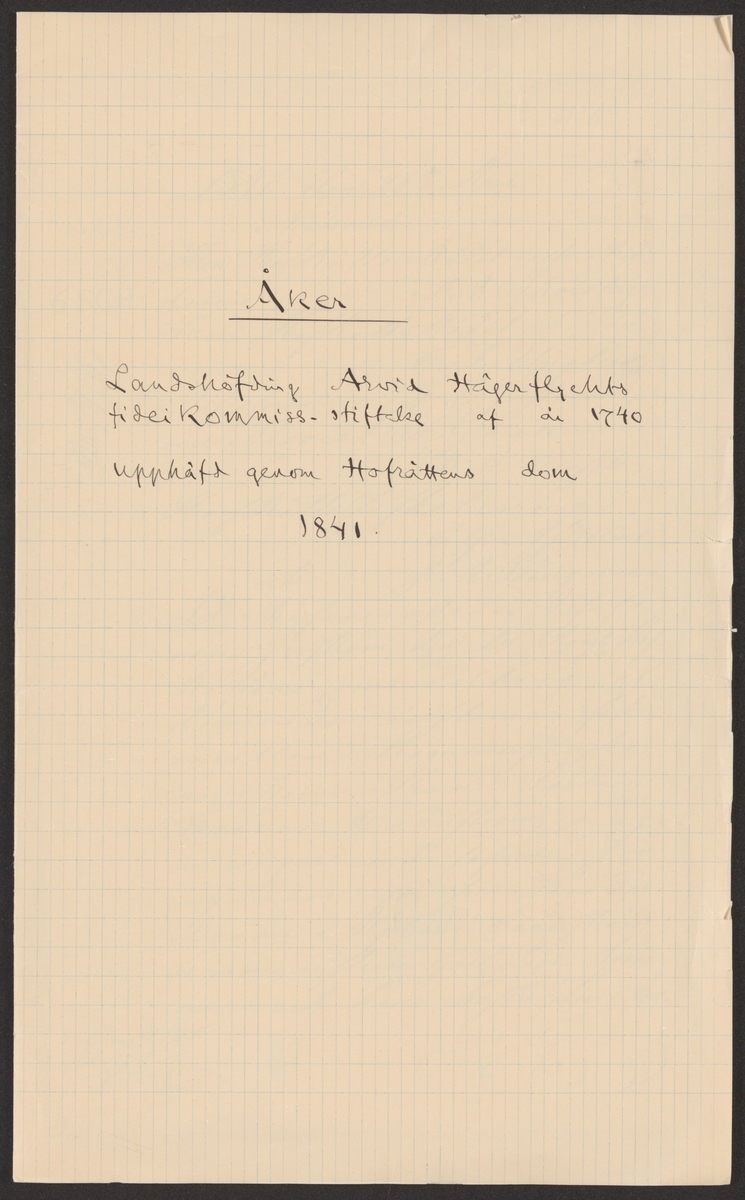 Åker
Landshöfding Arvid Hägerflychts
fideikommiss-stiftelse af år 1740
upphäfd genom Hofrättens dom
1841.